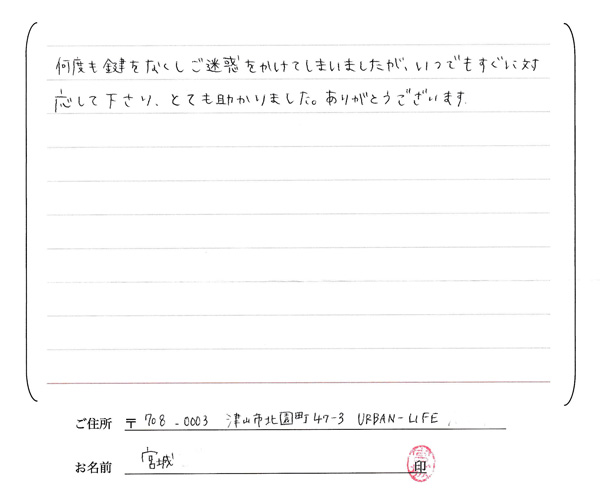 何度も鍵をなくしご迷惑をかけてしまいましたが、いつでもすぐに対
応して下さり、とても助かりました。ありがとうございます。
ご住所 〒 708-0003 津山市北園町47-3 URBAN-LIFE
お名前 宮城 印